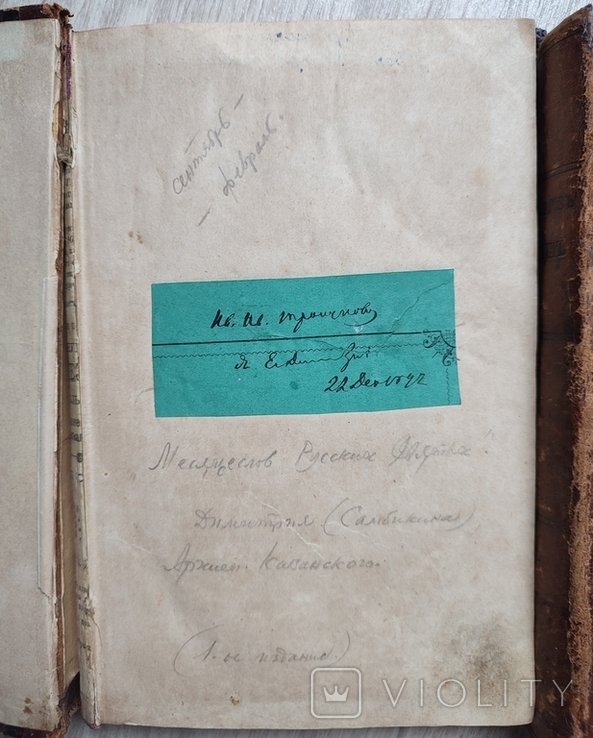 сентябрь –
– февраль.
Ив. Ив. Троицкову
22 Dec 1892
"Месяцеслов Русских Святых"
Димитрия (Самбикина)
Архиеп. Казанского.
(1-ое издание)
VIOLITY